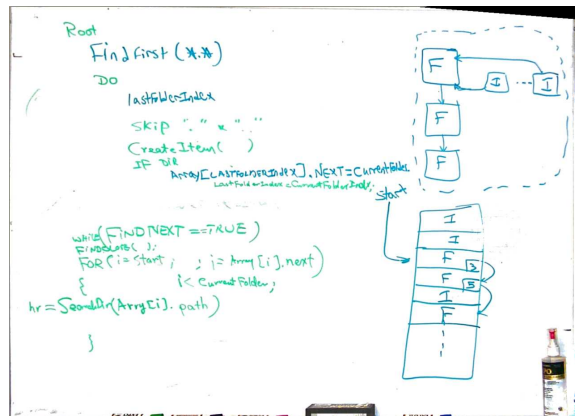 Root
Find First (*.*)
DO
lastFolderIndex
SKIP "." & ".."
CreateItem( )
IF DIR
Array[LASTFOLDERIndex].NEXT=CurrentFolder
LastFolderIndex=CurrentFolderIndex;
while(FINDNEXT ==TRUE)
FINDCLOSE( );
FOR(i=Start; ; i=Array[i].next)
{ i< CurrentFolder;
hr=ScanDir(Array[i].path)
}
F
I ... I
F
F
Start
I
I
F 3
F 5
I
F